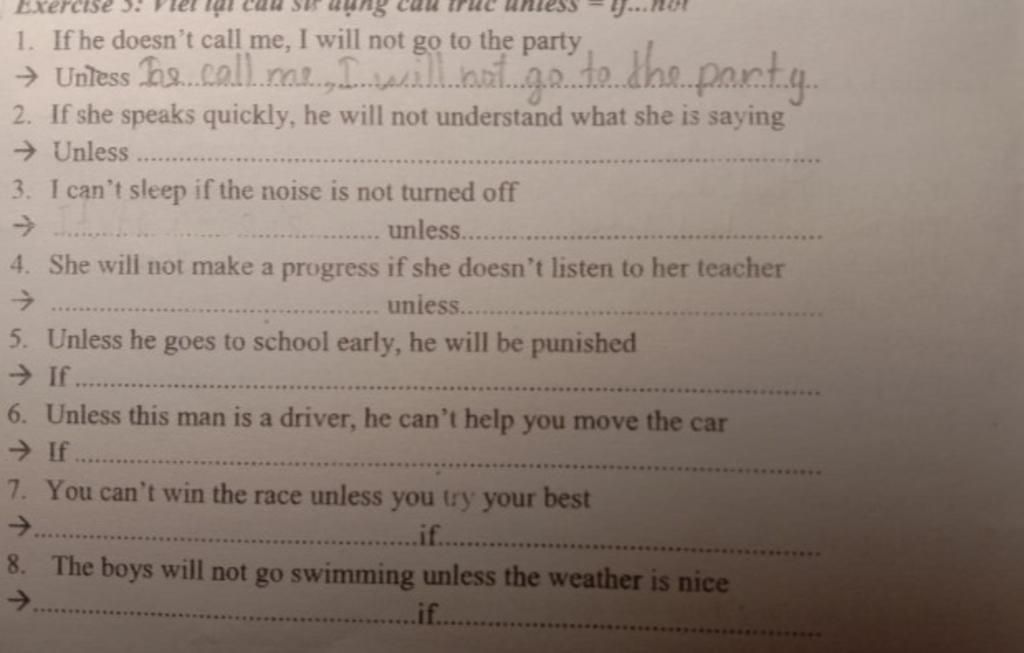 Exercise 5: Viết lại câu sử dụng cấu trúc unless = if...not
1. If he doesn't call me, I will not go to the party
→ Unless he call me, I will not go to the party
2. If she speaks quickly, he will not understand what she is saying
→ Unless ........................................
3. I can't sleep if the noise is not turned off
→ .............................. unless..............................
4. She will not make a progress if she doesn't listen to her teacher
→ .............................. unless..............................
5. Unless he goes to school early, he will be punished
→ If ........................................
6. Unless this man is a driver, he can't help you move the car
→ If ........................................
7. You can't win the race unless you try your best
→ ..............................if..............................
8. The boys will not go swimming unless the weather is nice
→ ..............................if..............................